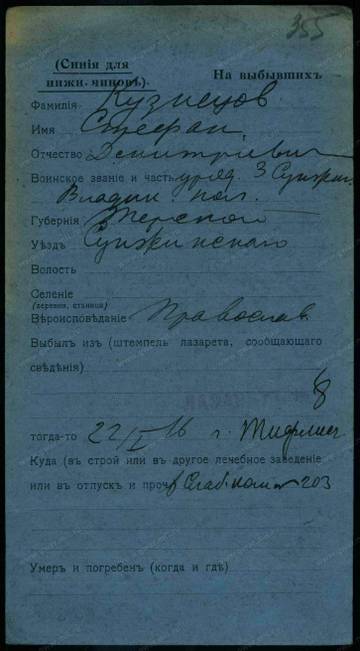 355
(Синія для
нижн. чиновъ).
На выбывшихъ
Фамилія Кузнецов
Имя Стефан
Отчество Дмитриевич
Воинское званіе и часть уряд. 3 Сунжен
Владик. пол.
Губернія Терской
Уѣздъ Сунженскаго
Волость
Селеніе
(деревня, станица)
Вѣроисповѣданіе Православ
Выбылъ изъ (штемпель лазарета, сообщающаго
свѣдѣнія)
8
тогда-то 22/I 16 г. Тифлис
Куда (въ строй или въ другое лечебное заведеніе
или въ отпускъ и проч.) Слаб. ком 203
Умеръ и погребенъ (когда и гдѣ)